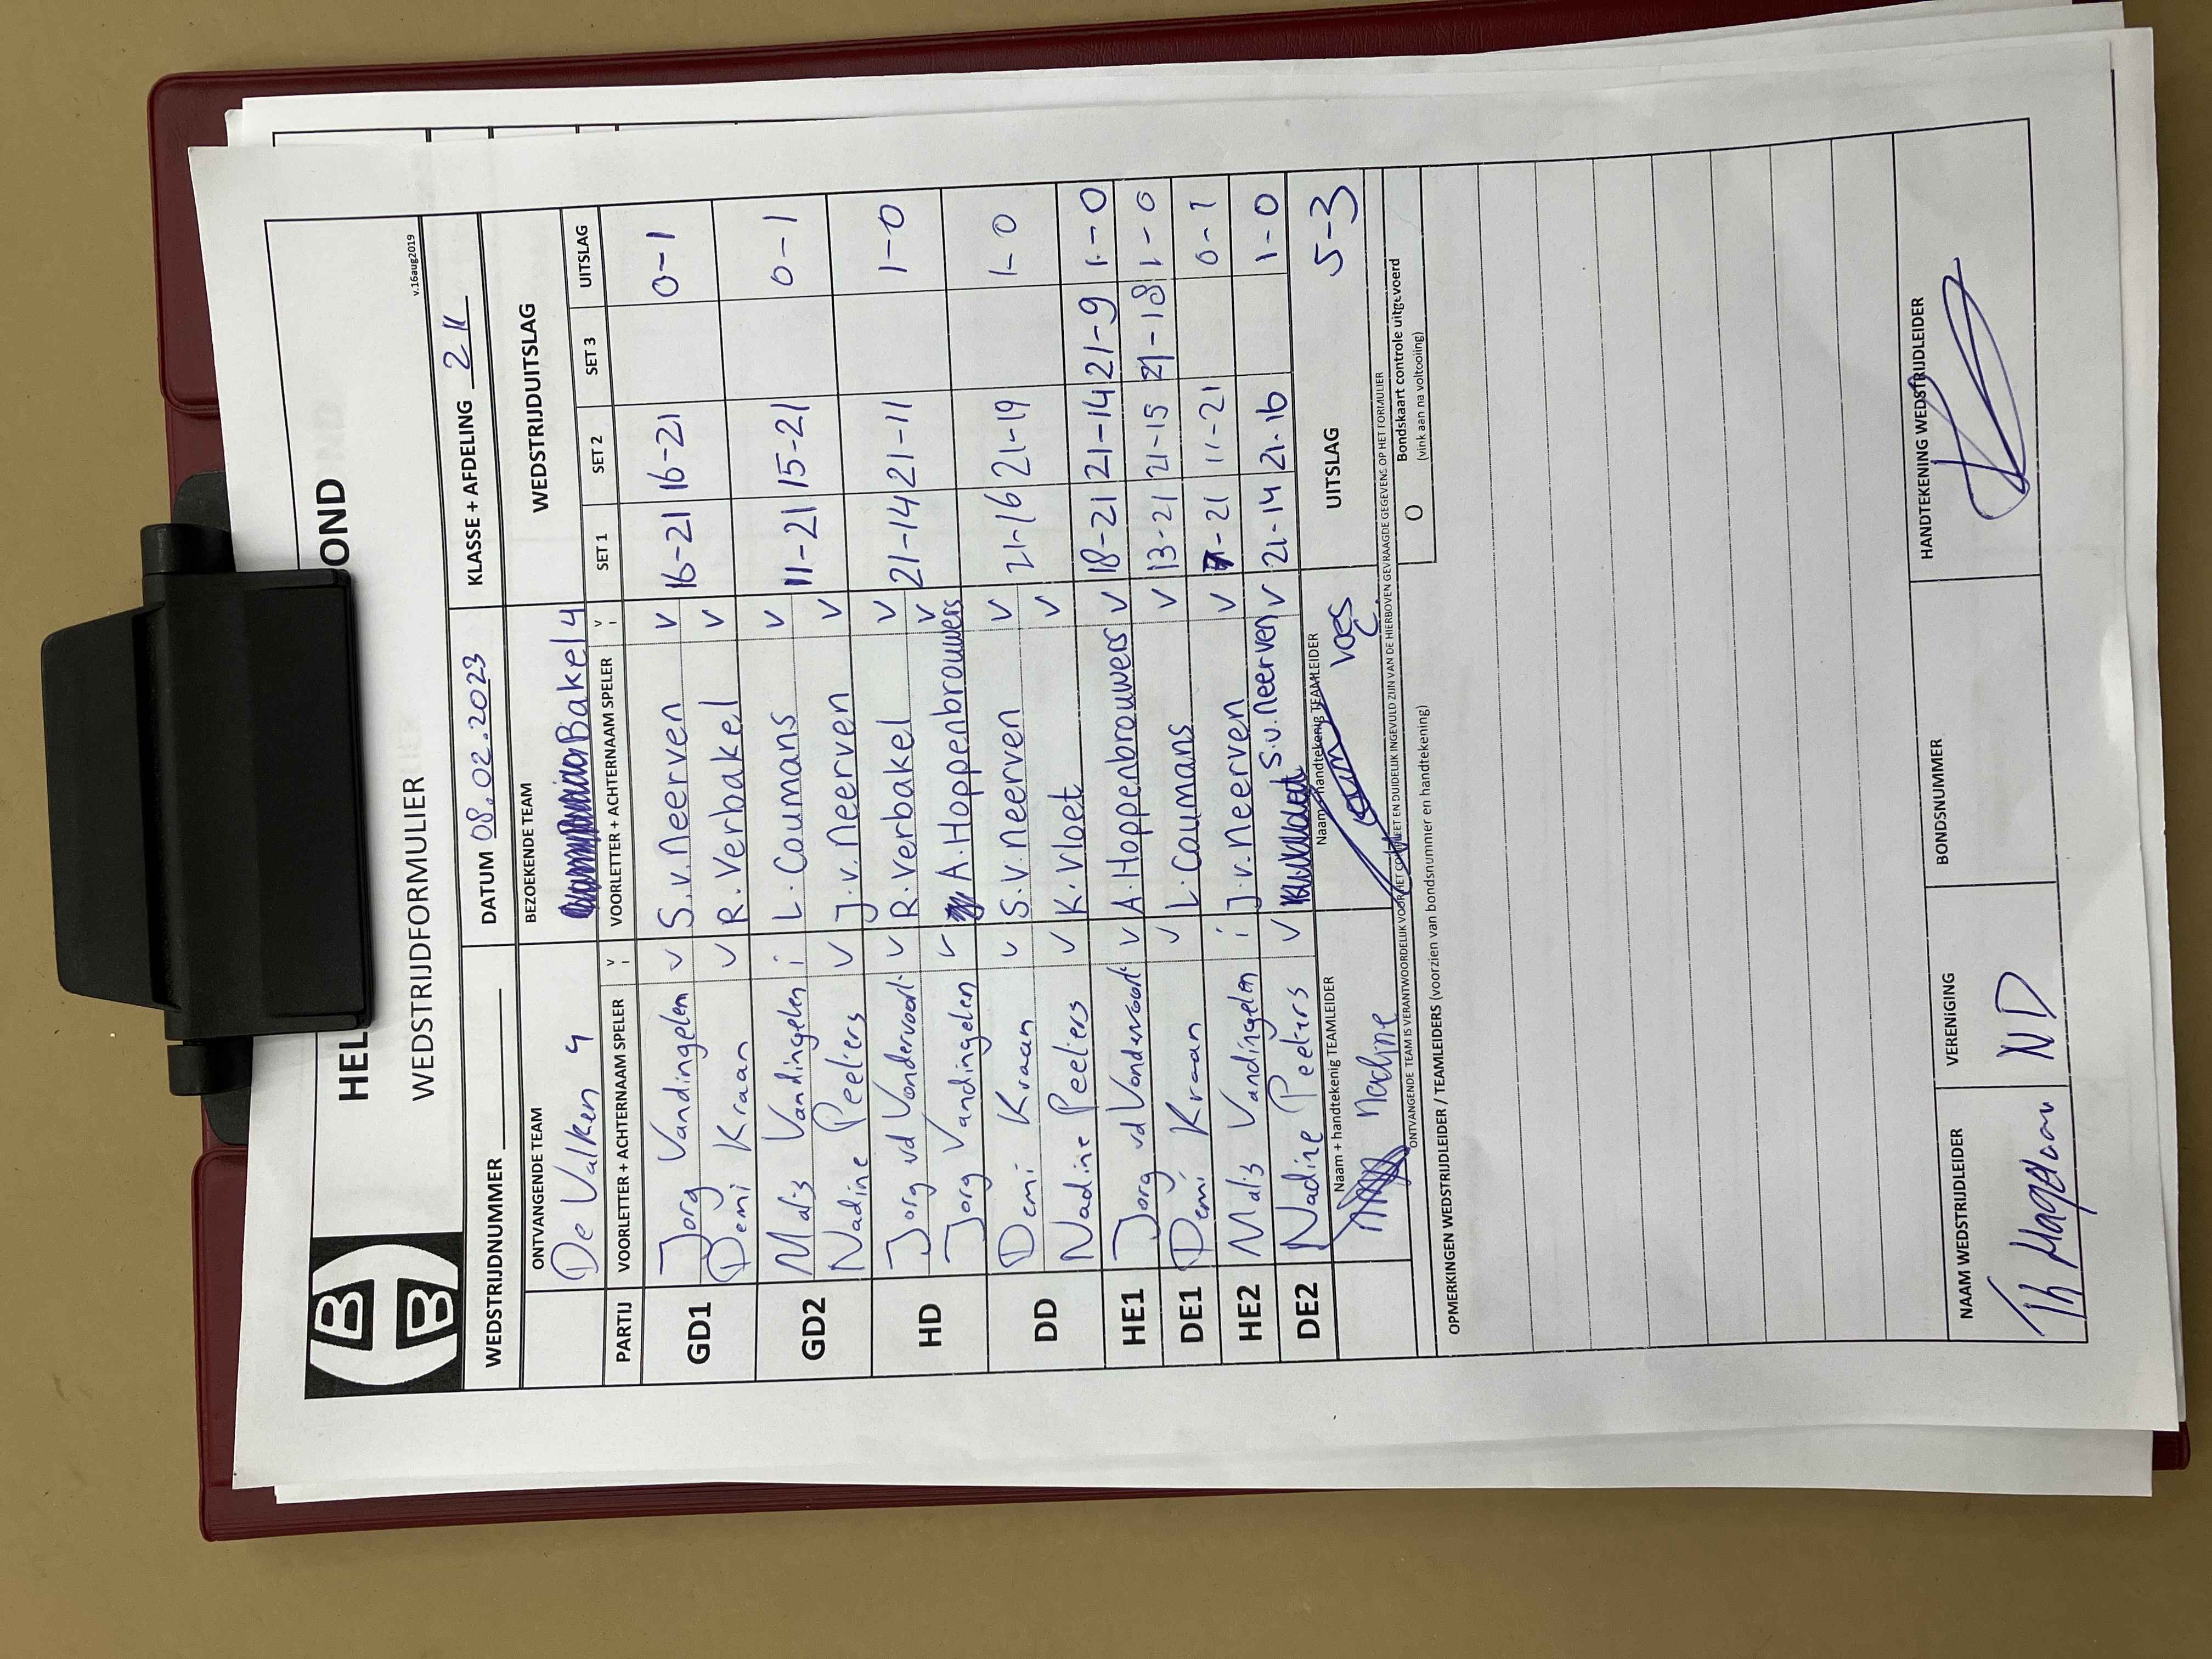 HEL OND
WEDSTRIJDFORMULIER
v.16aug2019
WEDSTRIJDNUMMER DATUM 08.02.2023 KLASSE + AFDELING 2
ONTVANGENDE TEAM BEZOEKENDE TEAM WEDSTRIJDUITSLAG
De Valken 4 Bakel 4
PARTIJ VOORLETTER + ACHTERNAAM SPELER V I VOORLETTER + ACHTERNAAM SPELER V I SET 1 SET 2 SET 3 UITSLAG
GD1 Jorg Vandingelen v S.v.Neerven v 16-21 16-21 0-1
Demi Kraan v R.Verbakel v
GD2 Vandingelen i L.Coumans v 11-21 15-21 0-1
Nadine Peeters v J.v.Neerven v
HD Jorg vd Vondervoort v R.Verbakel v 21-14 21-11 1-0
Jorg Vandingelen v A.Hoppenbrouwers v
DD Demi Kraan v S.v.Neerven v 21-16 21-19 1-0
Nadine Peeters v K.Vloet v
HE1 Jorg vd Vondervoort v A.Hoppenbrouwers v 18-21 21-14 21-9 1-0
DE1 Demi Kraan v L.Coumans v 13-21 21-15 21-18 1-0
HE2 Vandingelen i J.v.Neerven v 7-21 11-21 0-1
DE2 Nadine Peeters v S.v.Neerven v 21-14 21-16 1-0
Naam + handtekenig TEAMLEIDER Naam + handtekenig TEAMLEIDER UITSLAG 5-3
Nadine
ONTVANGENDE TEAM IS VERANTWOORDELIJK VOOR HET COMPLEET EN DUIDELIJK INGEVULD ZIJN VAN DE HIERBOVEN GEVRAAGDE GEGEVENS OP HET FORMULIER
O Bondskaart controle uitgevoerd
(vink aan na voltooiing)
OPMERKINGEN WEDSTRIJDLEIDER / TEAMLEIDERS (voorzien van bondsnummer en handtekening)
NAAM WEDSTRIJDLEIDER VERENIGING BONDSNUMMER HANDTEKENING WEDSTRIJDLEIDER
Th ND